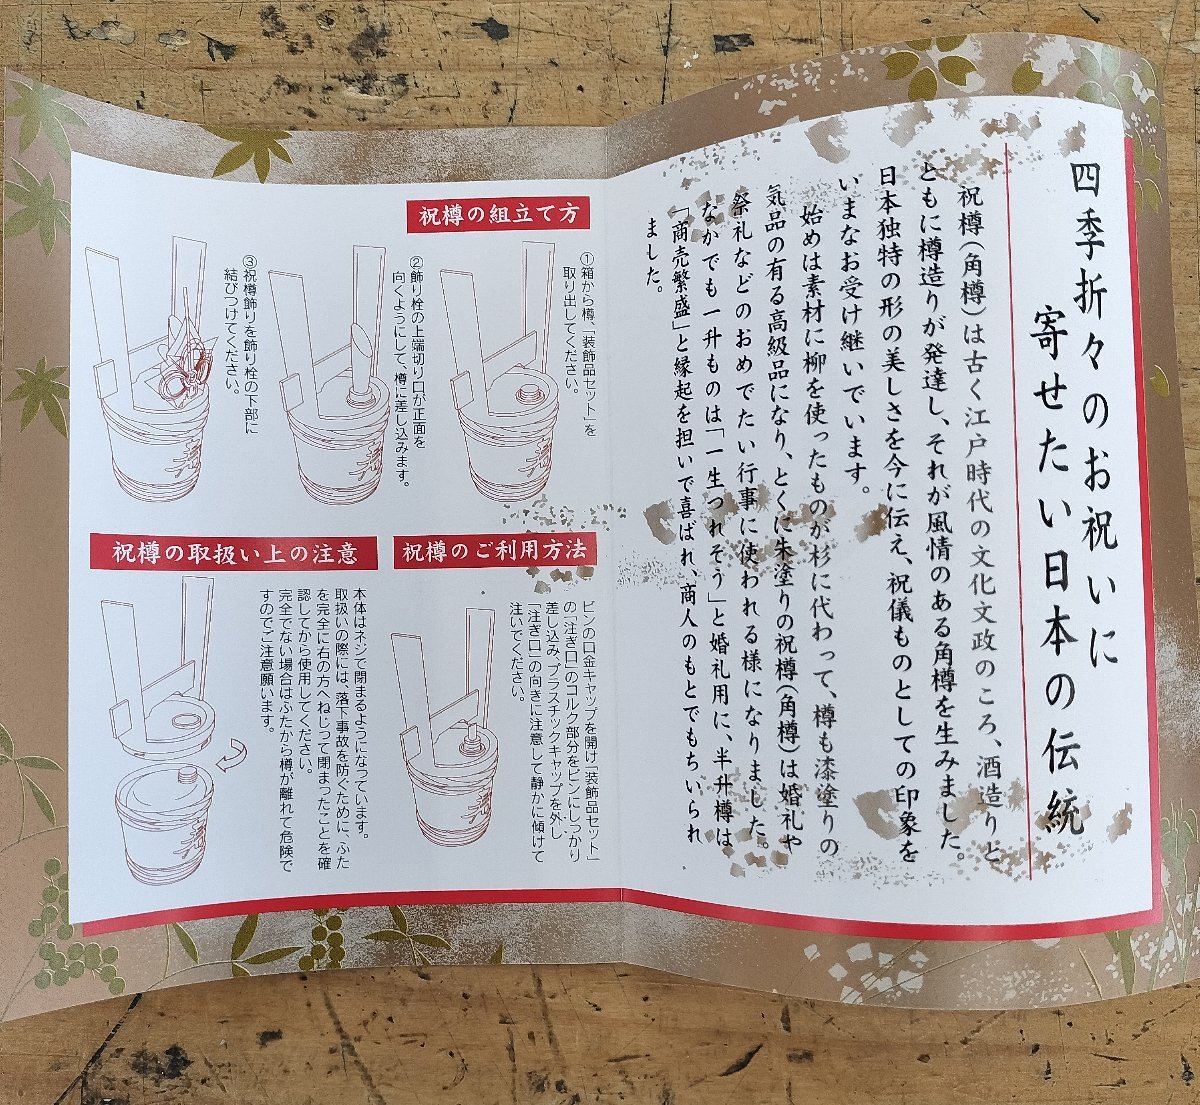 四季折々のお祝いに
寄せたい日本の伝統
祝樽（角樽）は古く江戸時代の文化文政のころ、酒造りと
ともに樽造りが発達し、それが風情のある角樽を生みました。
日本独特の形の美しさを今に伝え、祝儀ものとしての印象を
いまなお受け継いでいます。
始めは素材に柳を使ったものが杉に代わって、樽も漆塗りの
気品の有る高級品になり、とくに朱塗りの祝樽（角樽）は婚礼や
祭礼などのおめでたい行事に使われる様になりました。
なかでも一升ものは「一生つれそう」と婚礼用に、半升樽は
「商売繁盛」と縁起を担いで喜ばれ、商人のもとでもちいられ
ました。
祝樽の組立て方
①箱から樽、「装飾品セット」を
取り出してください。
②飾り栓の上端切り口が正面を
向くようにして、樽に差し込みます。
③祝樽飾りを飾り栓の下部に
結びつけてください。
祝樽のご利用方法
ビンの口金キャップを開け「装飾品セット」
の「注ぎ口」のコルク部分をビンにしっかり
差し込み、プラスチックキャップを外し
「注ぎ口」の向きに注意して静かに傾けて
注いでください。
祝樽の取扱い上の注意
本体はネジで閉まるようになっています。
取扱いの際には、落下事故を防ぐために、ふた
を完全に右の方へねじって閉まったことを確
認してから使用してください。
完全でない場合はふたから樽が離れて危険で
すのでご注意願います。